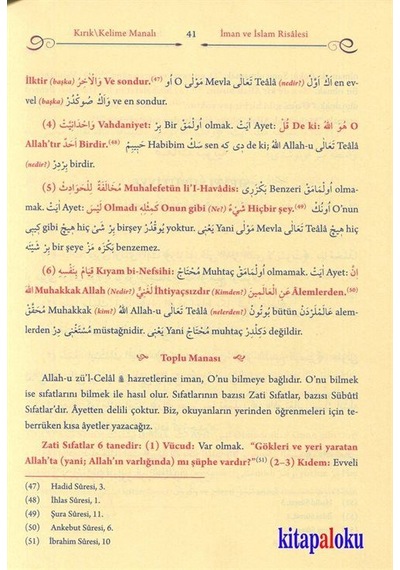 Kırık\Kelime Manalı 41 İman ve İslam Risâlesi
İlktir (başka) وَالْاٰخِرُ Ve sondur.(47) أو O مَوْلٰى Mevla تَعَالٰى Teâlâ (nedir?) اَكْ اَوَّلْ en ev-
vel (başka) وَاَكْ صُوكْدُرْ ve en sondur.
(4) وَاحْدَانِيَّتْ Vahdaniyet: بِرْ Bir اُولْمَقْ olmak. اٰيَتْ Ayet: قُلْ De ki: هُوَ اللهُ O
Allah'tır اَحَدٌ Birdir.(48) حَبِيبِمْ Habibim سَنْ sen دِى كِه de ki; اللهُ Allah-u تَعَالٰى Teâlâ
(nedir?) بِرْدِرْ birdir.
(5) مُخَالَفَةٌ لِلْحَوَادِثْ Muhalefetün li'l-Havâdis: بَكْزَرِى Benzeri اُولْمَامَقْ olma-
mak. اٰيَتْ Ayet: لَيْسَ Olmadı كَمِثْلِهِ Onun gibi (Ne?) شَىْءٌ Hiçbir şey.(49) اُونُكْ O'nun
كِبِى gibi هِيچْ بِرْ شَىْ hiç birşey يُوقْدُرْ yoktur. يَعْنِى Yani مَوْلٰى Mevla تَعَالٰى Teâlâ هِيچْ hiç
بِرْ شَيْئِه bir şeye بَكْزَه مَزْ benzemez.
(6) قِيَامٌ بِنَفْسِهِ Kıyam bi-Nefsihi: مُحْتَاجْ Muhtaç اُولْمَامَقْ olmamak. اٰيَتْ Ayet: اِنَّ
اللهَ Muhakkak Allah (Nedir?) لَغَنِىٌّ İhtiyaçsızdır (Kimden?) عَنِ الْعَالَمِينَ Âlemlerden.(50)
مُحَقَّقْ Muhakkak (kim?) اللهُ Allah-u تَعَالٰى Teâlâ (nelerden?) بُوتُونْ bütün عَالَمْلَرْدَنْ alem-
lerden مُسْتَغْنِى دِرْ müstağnidir. يَعْنِى Yani مُحْتَاجْ muhtaç دَكِلْدِرْ değildir.
Toplu Manası
Allah-u zü'l-Celâl hazretlerine iman, O'nu bilmeye bağlıdır. O'nu bilmek
ise sıfatlarını bilmek ile hasıl olur. Sıfatlarının bazısı Zati Sıfatlar, bazısı Sübûti
Sıfatlar'dır. Âyetten delili çoktur. Biz, okuyanların yerinden öğrenmeleri için te-
berrüken kısa âyetler yazacağız.
Zati Sıfatlar 6 tanedir: (1) Vücud: Var olmak. "Gökleri ve yeri yaratan
Allah'ta (yani; Allah'ın varlığında) mı şüphe vardır?"(51) (2-3) Kıdem: Evveli
(47) Hadid Sûresi, 3.
(48) İhlas Sûresi, 1.
(49) Şura Sûresi, 11.
(50) Ankebut Sûresi, 6.
(51) İbrahim Sûresi, 10
kitapaloku